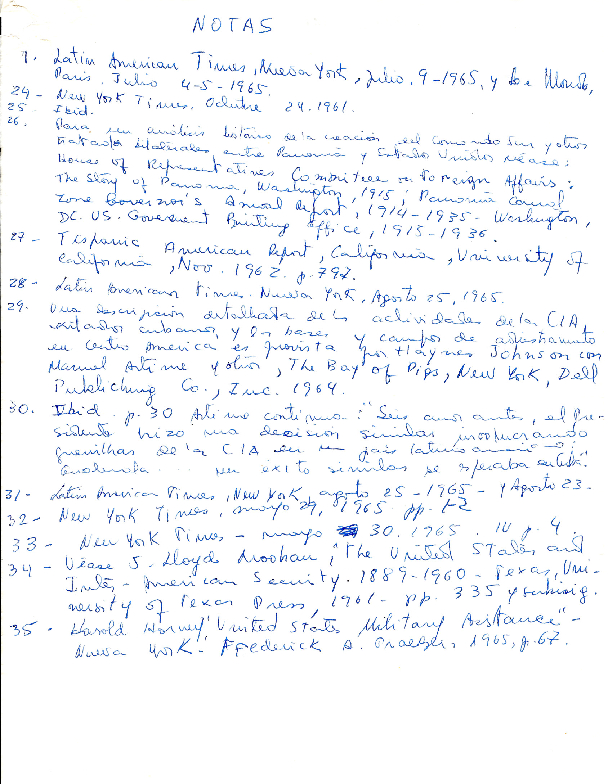 NOTAS
9. Latin American Times, Nueva York, Julio. 9-1965, y Le Monde,
Paris, Julio 4-5-1965.
24 - New York Times, Octubre 24.1961.
25 Ibid.
26. Para un análisis histórico de la creación del Comando Sur y otros
tratados bilaterales entre Panamá y Estados Unidos véase:
House of Representatives Committee on Foreign Affairs:
The Story of Panama, Washington, 1915; Panama Canal
Zone Governor's Annual Report, 1914-1935- Washington,
DC. US. Goverment Printing Office, 1915-1936
27 - Tispanic American Report, California, University of
California, Nov. 1962. p. 797.
28 - Latin American Times. Nueva York, Agosto 25, 1965.
29. Una descripción detalhata de las actividades de la CIA,
exilados cubanos, y las bases y campos de adiestramiento
en Centro America es provista por Haynes Johnson con
Manuel Artime y otros, The Bay of Pigs, New York, Dell
Publiching Co., Inc. 1964.
30. Ibid. p. 30 Artime continua: "Seis anos antes, el Pre-
sidente hizo una decisión similar involucrando
guerrilhas de la CIA en un pais latino americano:
Guatemala... un éxito similar se esperaba en Cuba".
31 - Latin American Times, New York, agosto 25 - 1965 - y Agosto 23.
32 - New York Times, mayo 29, 1965. pp. 1-2
33 - New York Times - mayo 30. 1965. IV p. 4.
34 - Vease J. Lloyds Mecham; "The United States and
Inter - American Security. 1889-1960 - Texas, Uni-
versity of Texas Press, 1961 - pp. 335 y
35 - Harold Hovney "United States Military Assistance" -
Nueva York - Frederick A. Praeger, 1965, p. 67.